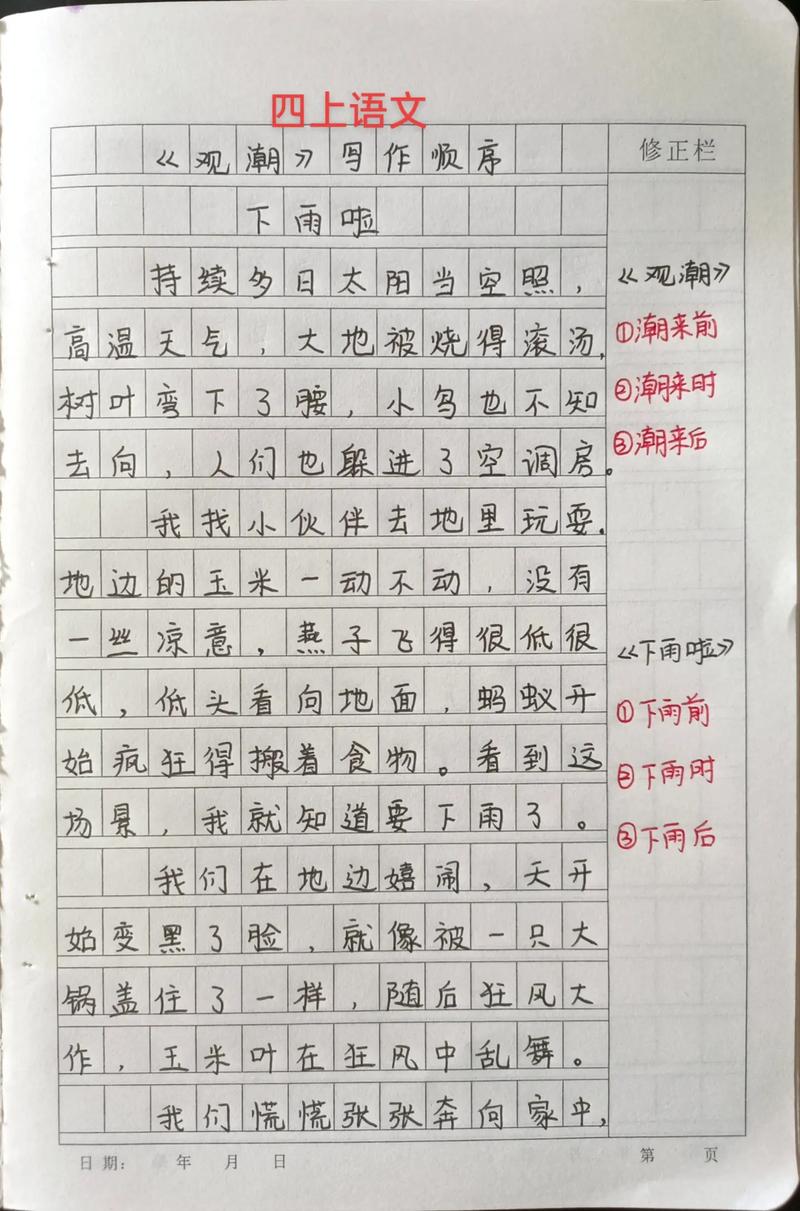 四上语文
《观潮》写作顺序
修正栏
下雨啦
持续多日太阳当空照，
高温天气，大地被烧得滚汤，
树叶弯下了腰，小鸟也不知
去向，人们也躲进了空调房。
我找小伙伴去地里玩耍。
地边的玉米一动不动，没有
一丝凉意，燕子飞得很低很
低，低头看向地面，蚂蚁开
始疯狂得搬着食物。看到这
场景，我就知道要下雨了。
我们在地边嬉闹，天开
始变黑了脸，就像被一只大
锅盖住了一样，随后狂风大
作，玉米叶在狂风中乱舞。
我们慌慌张张奔向家中，
《观潮》
①潮来前
②潮来时
③潮来后
《下雨啦》
①下雨前
②下雨时
③下雨后
日期： 年 月 日
第 页